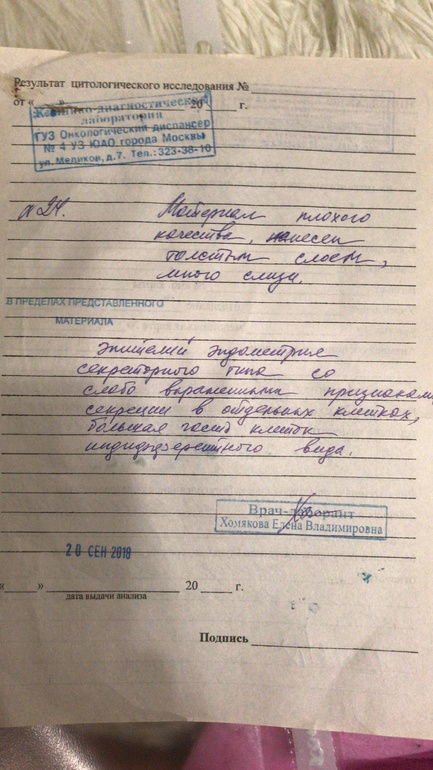 Результат цитологического исследования №
от « » 20 г.
Клинико-диагностическая
лаборатория
ГУЗ Онкологический диспансер
№ 4 УЗ ЮАО города Москвы
ул. Медиков, д.7. Тел.: 323-38-10
№24. Материал плохого
качества, нанесен
толстым слоем,
много слизи.
В ПРЕДЕЛАХ ПРЕДСТАВЛЕННОГО
МАТЕРИАЛА
эпителий эндометрия
секреторного типа со
слабо выраженными признаками
секреции в отдельных клетках,
большая часть клеток
индифферентного вида.
Врач-лаборант
Хомякова Елена Владимировна
20 СЕН 2018
« » 20 г.
дата выдачи анализа
Подпись